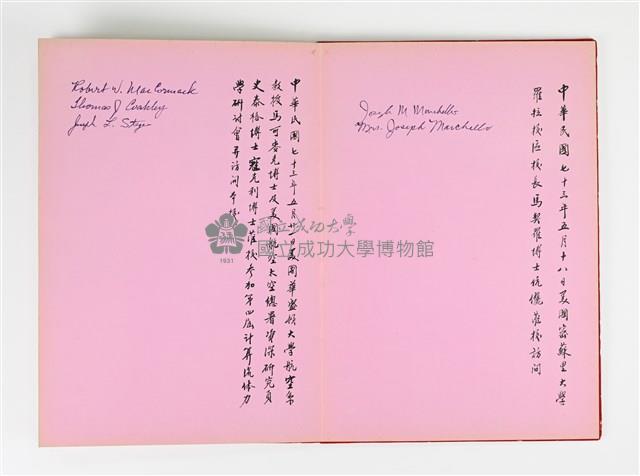 中華民國七十三年五月十八日美國密蘇里大學
羅拉校區校長馬契羅博士伉儷蒞校訪問
Joseph M. Marchello
Mrs. Joseph Marchello
中華民國七十三年五月廿一日美國華盛頓大學航空系
教授馬可麥克博士及美國航空太空總署資深研究員
史泰格博士寇克利博士蒞校參加第四屆計算流體力
學研討會并訪問本校
Robert W. MacCormack
Thomas J. Coakley
Joseph L. Steger
國立成功大學
國立成功大學博物館
1931